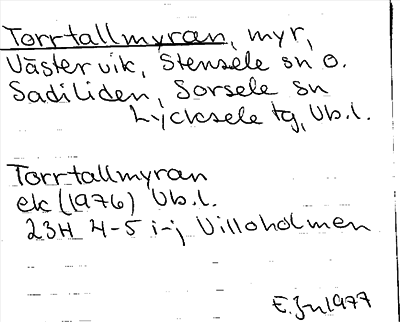 Torrtallmyran, myr,
Västervik, Stensele sn o.
Sadiliden, Sorsele sn
Lycksele tg, Vb.l.
Torrtallmyran
ek (1976) Vb.l.
23H 4-5 i-j Villoholmen
E. Ju 1977